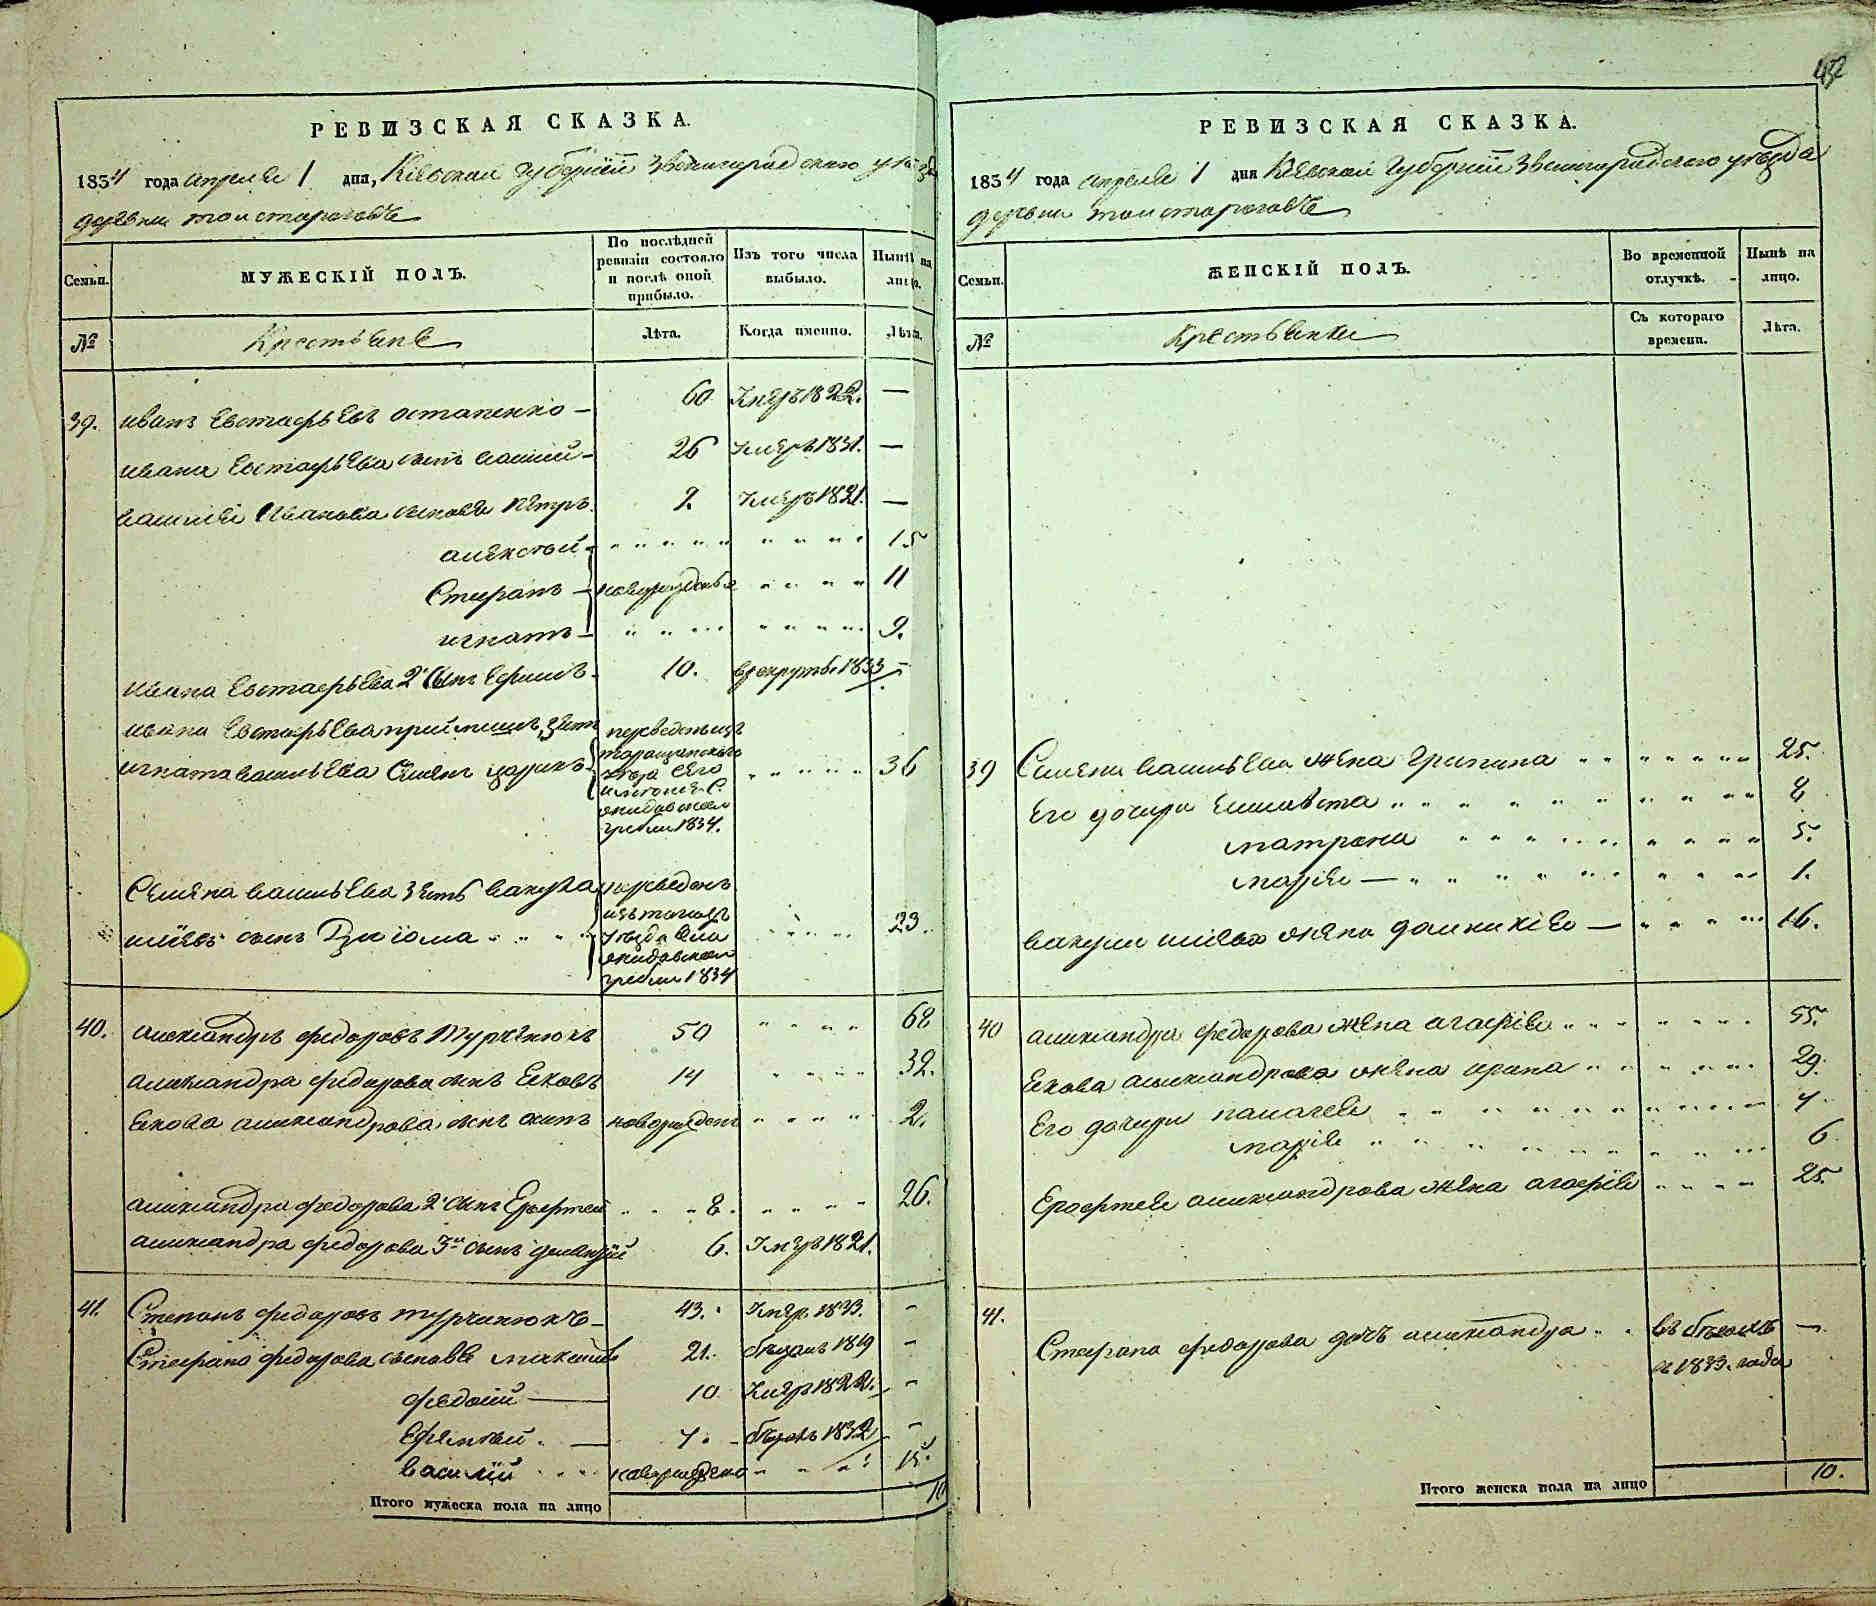 РЕВИЗСКАЯ СКАЗКА.
1834 года апреля 1 дня, Кіевской Губерніи Звенигородского уезда
деревни
Семьи.
МУЖЕСКІЙ ПОЛЪ.
По послѣдней ревизіи состояло и послѣ оной прибыло.
Изъ того числа выбыло.
Нынѣ на лицо.
№
Крестьяне
Лѣта.
Когда именно.
Лѣта.
39. иванъ Евстафьевъ остапенко – 60 Умеръ 1822. —
ивана Евстафьева сынъ василий – 26 Умеръ 1831. —
василія Иванова сыновья Петръ. Умеръ 1821. —
алексѣй – 15
Стефанъ – новорожденные 11
игнатъ – 9.
ивана Евстафьева 2й сынъ Ефимъ – 10. в рекруты 1833 –
ивана Евстафьева приймышъ, зять переведенъ изъ
игната васильева Семенъ таращанского 36
уезда
гребли 1834.
Семена васильева зять вакула переведенъ
сынъ 23.
гребли 1834
40. александръ федоровъ Турченюкъ 50 62
александра федорова сынъ Яковъ 14 32.
Якова александрова сынъ новорожденъ 2.
александра федорова 2й сынъ Ерофтей 8. 26.
александра федорова 3й сынъ 6. Умеръ 1821.
41. Степанъ федоровъ турченюкъ – 43. Умеръ 1833. –
Стефана федорова сыновья максимъ 21. бѣжалъ 1819 –
федосій — 10 Умеръ 1822. –
— 7. бѣжалъ 1832 –
василій новорожденъ 15.
Итого мужеска пола на лицо 10
РЕВИЗСКАЯ СКАЗКА.
1834 года апреля 1 дня Кіевской Губерніи Звенигородского уезда
деревни
Семьи.
ЖЕНСКІЙ ПОЛЪ.
Во временной отлучкѣ.
Нынѣ на лицо.
№
Крестьянки
Съ котораго времени.
Лѣта.
39 Семена васильева жена Грипина 25.
Его дочери Елисавета 8
матрона 5.
марія — 1.
вакулы жена домникія — 16.
40 александра федорова жена агафія 55.
Якова александрова жена ирина 29.
Его дочери палагея 7.
марія 6.
Ерофтея александрова жена агафія 25.
41. Стефана федорова дочь александра въ бѣгахъ —
съ 1833. года
Итого женска пола на лицо 10.